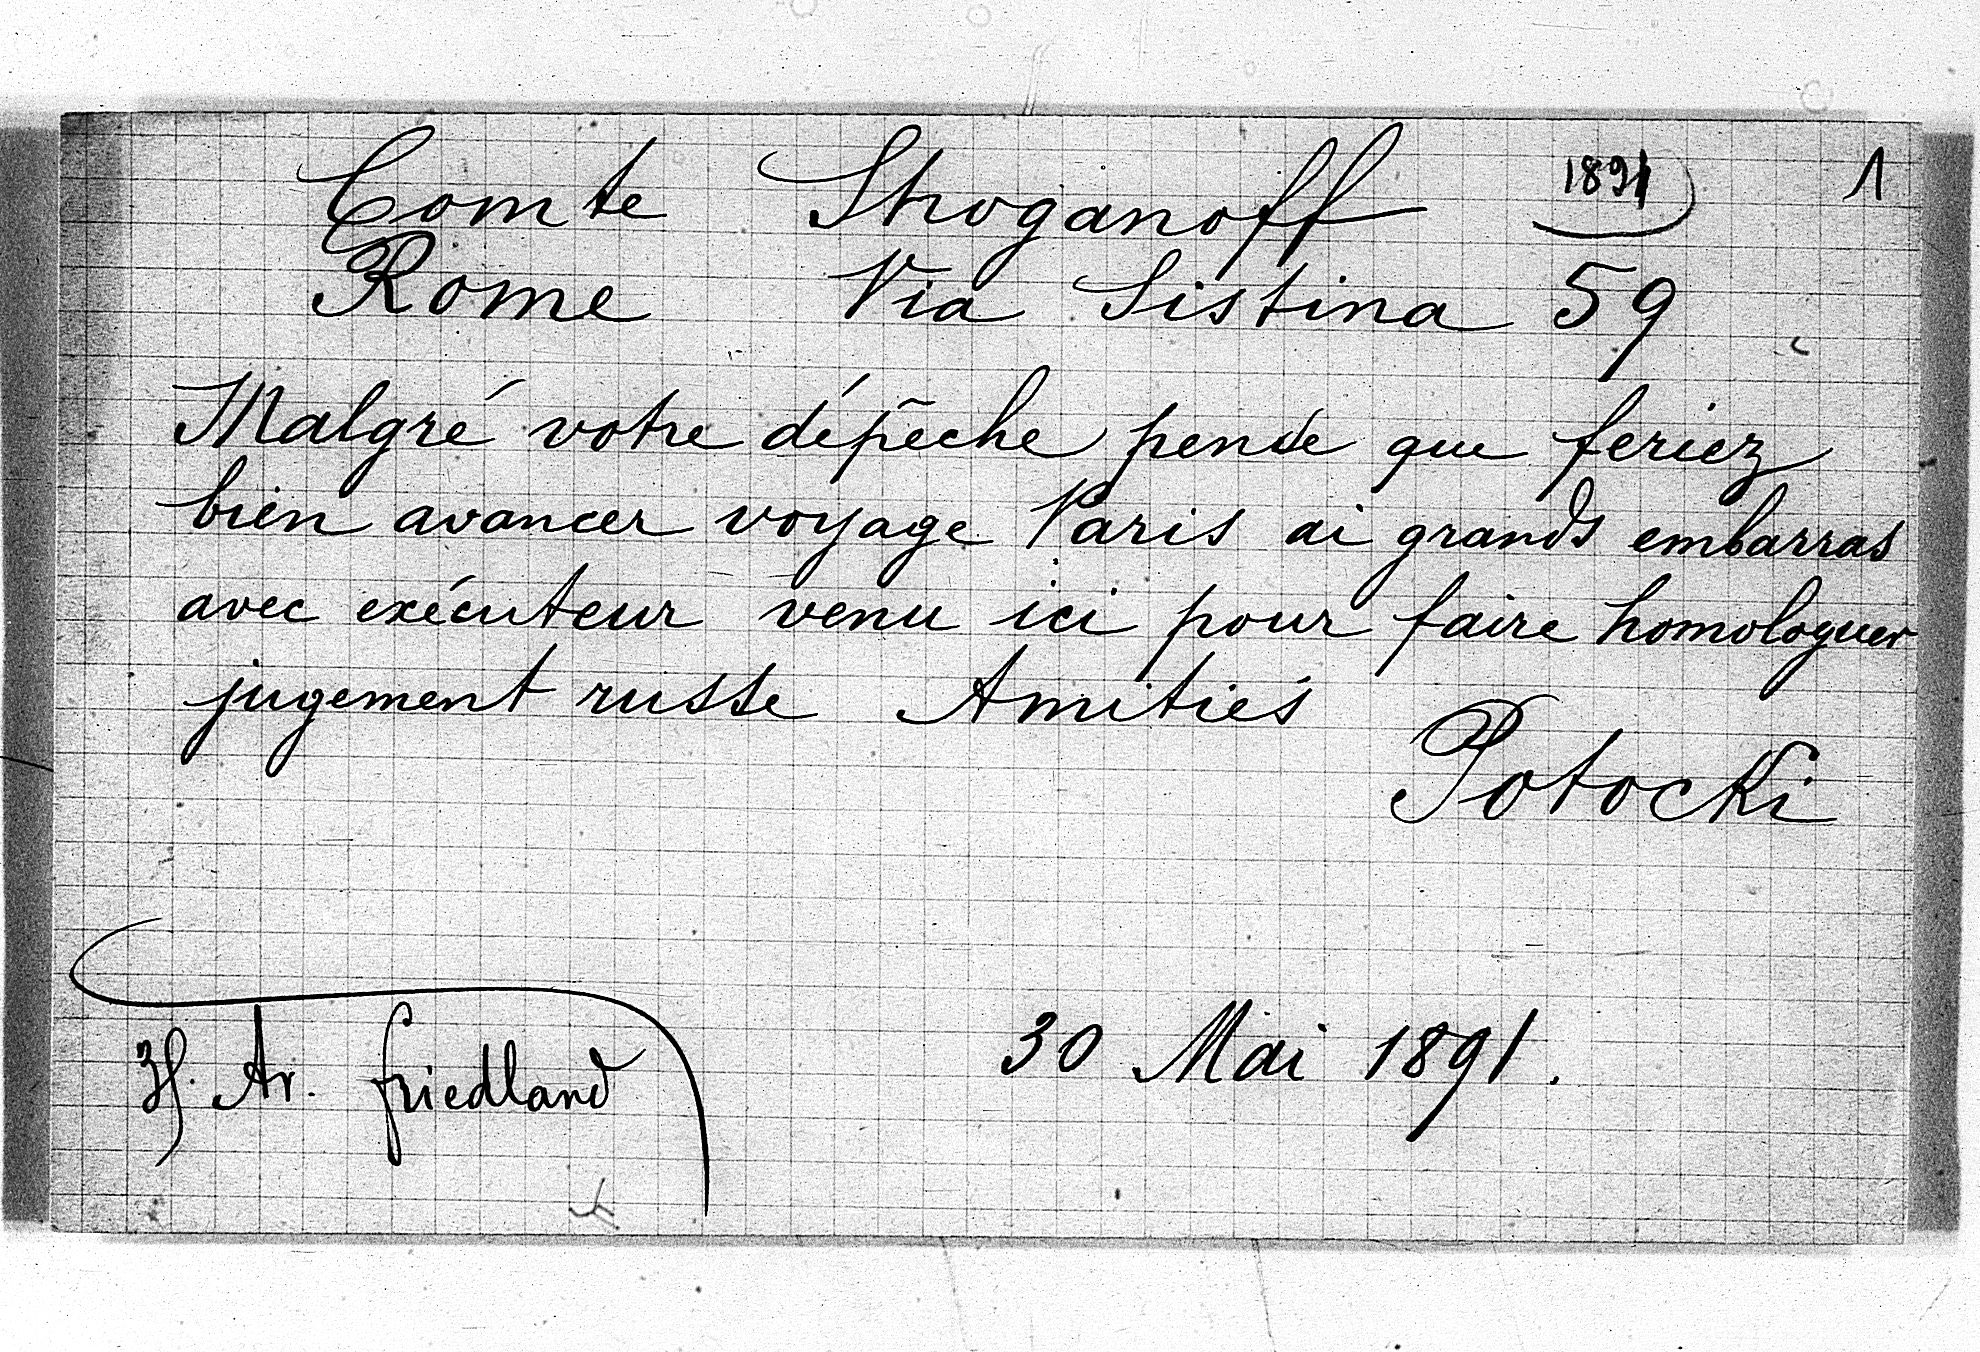 1891 1
Comte Stroganoff
Rome Via Sistina 59
Malgré votre dépêche pense que feriez
bien avancer voyage Paris ai grands embarras
avec exécuteur venu ici pour faire homologuer
jugement russe Amitiés
Potocki
Av. Friedland
30 Mai 1891.